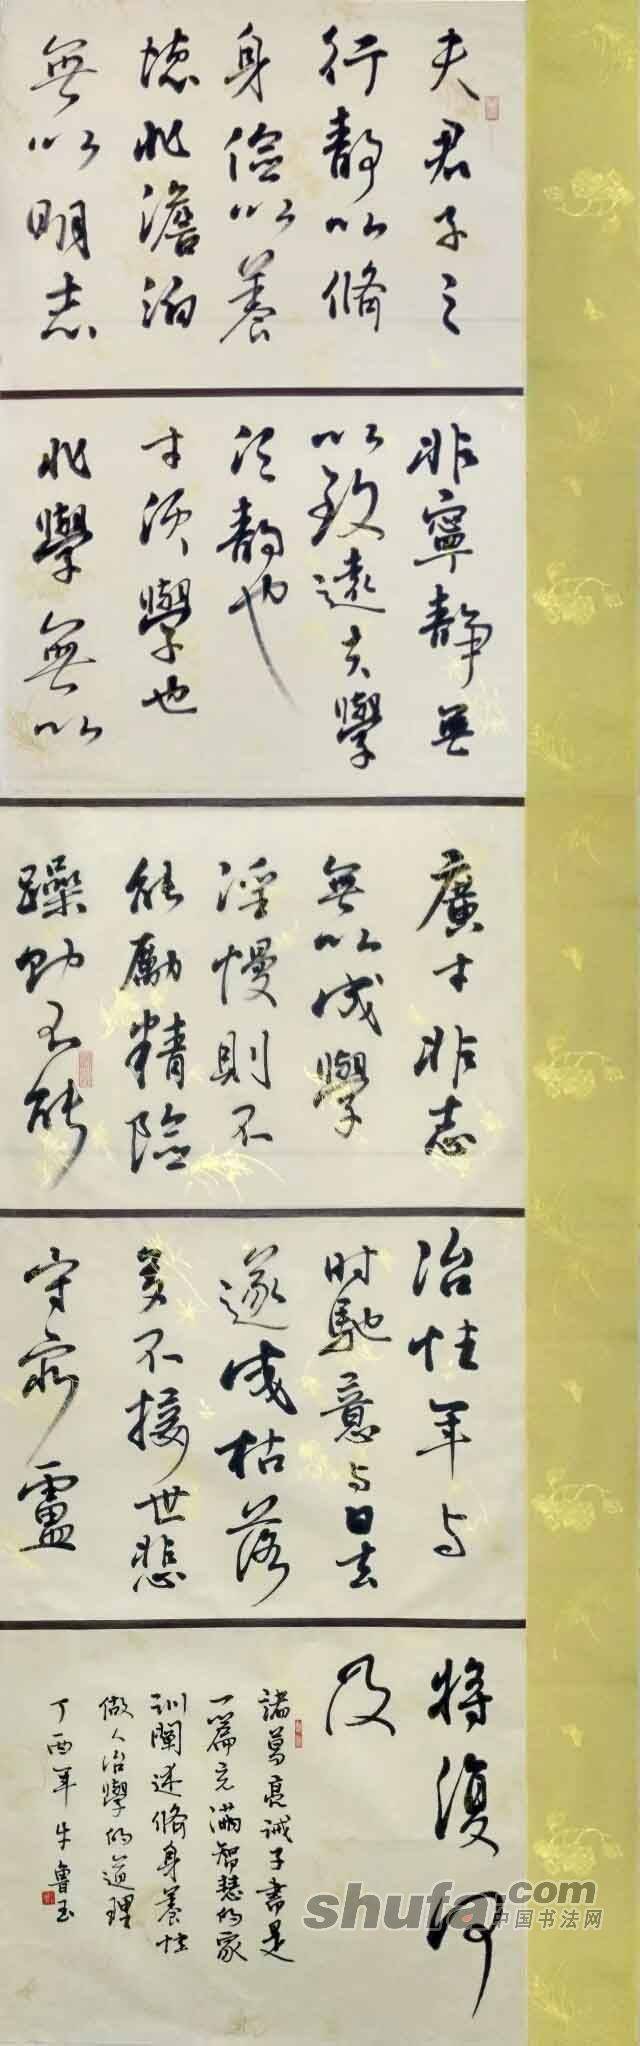 夫君子之
行静以脩
身儉以養
德非澹泊
無以明志
非寧静無
以致遠夫學
须静也
才须學也
非學無以
廣才非志
無以成學
淫慢則不
能勵精險
躁則不能
冶性年与
时馳意与日去
遂成枯落
多不接世悲
守窮盧
將復何
及
諸葛亮诫子書是
一篇充滿智慧的家
训闡述脩身養性
做人治學的道理
丁酉年牛魯玉
shufa.com
中国书法网